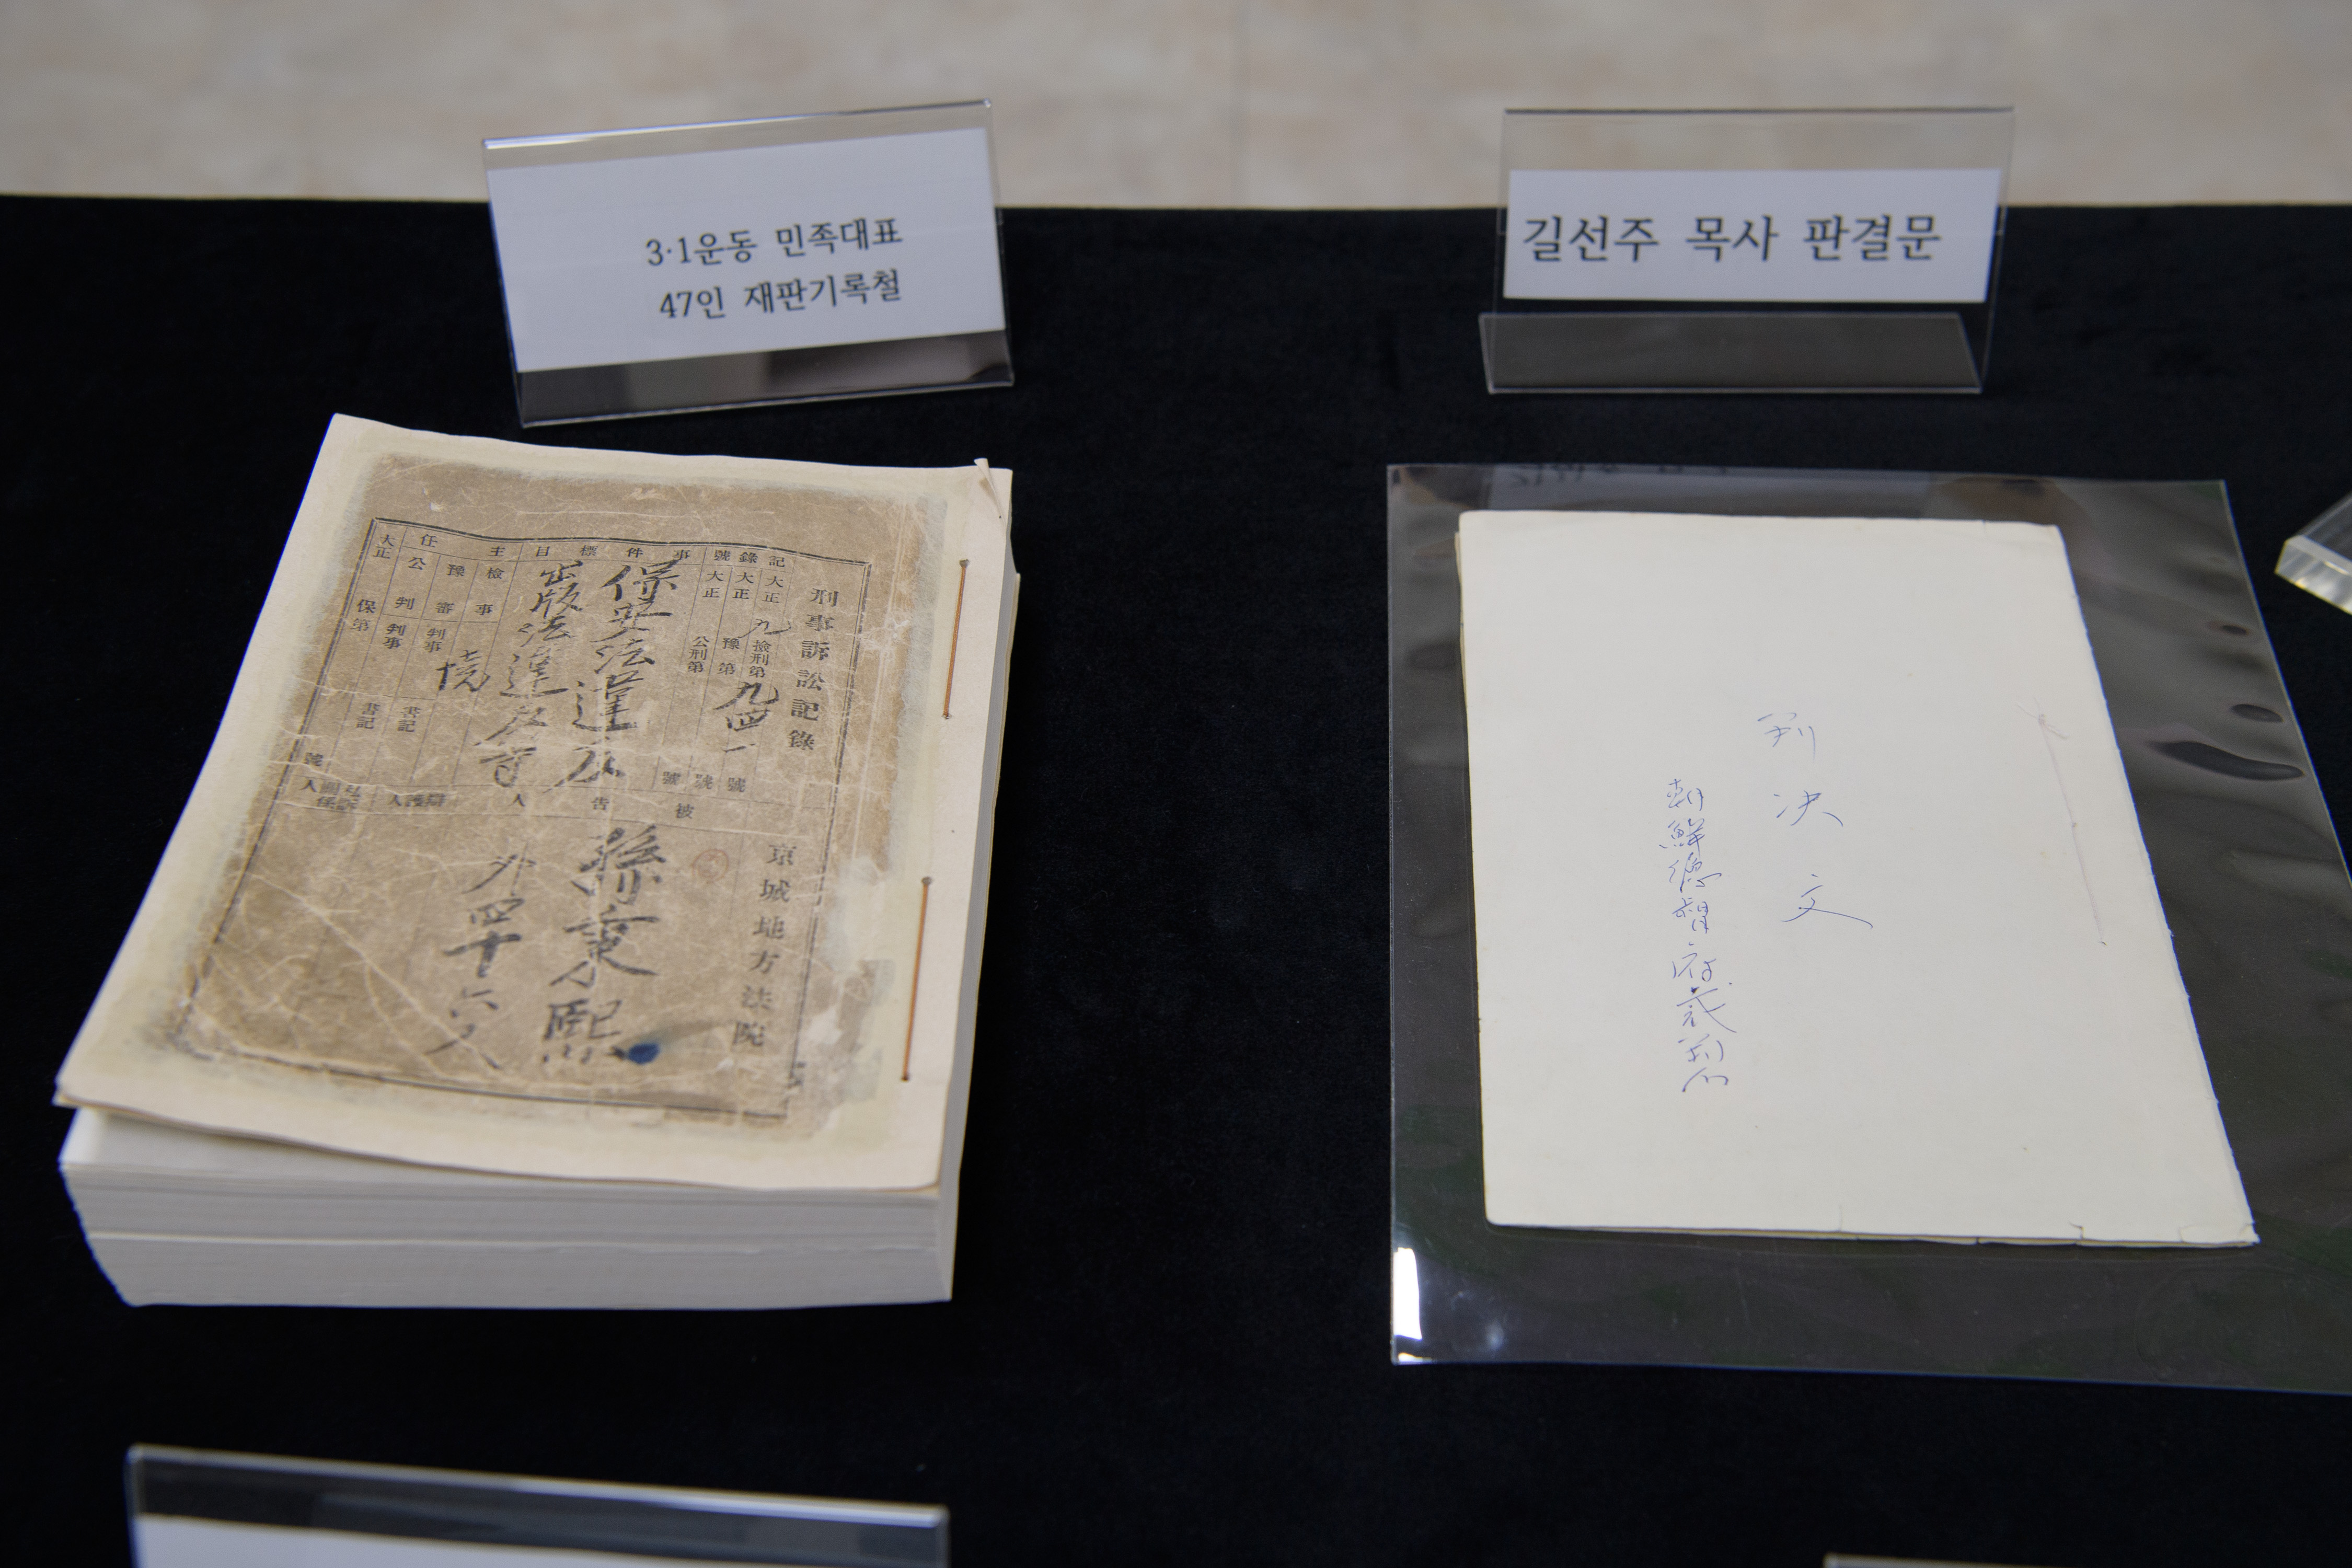 3·1운동 민족대표
47인 재판기록철
길선주 목사 판결문
刑事訴訟記錄
京城地方法院
記錄號
大正九檢刑第九四一號
大正 豫第 號
大正 公刑第 號
事件標目
保安法違反
出版法違反
主任
檢事
豫審 判事 境
公判 判事
書記
書記
大正
保第
號
被告人
孫秉熙
外四十六人
辯護人
判決文
朝鮮總督府裁判所